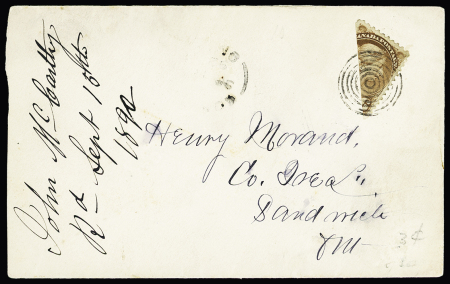 John McCarthy
Rd Sept 18th
1890
Henry Morand,
Co. Treas.,
Sandwich
Ont
3¢